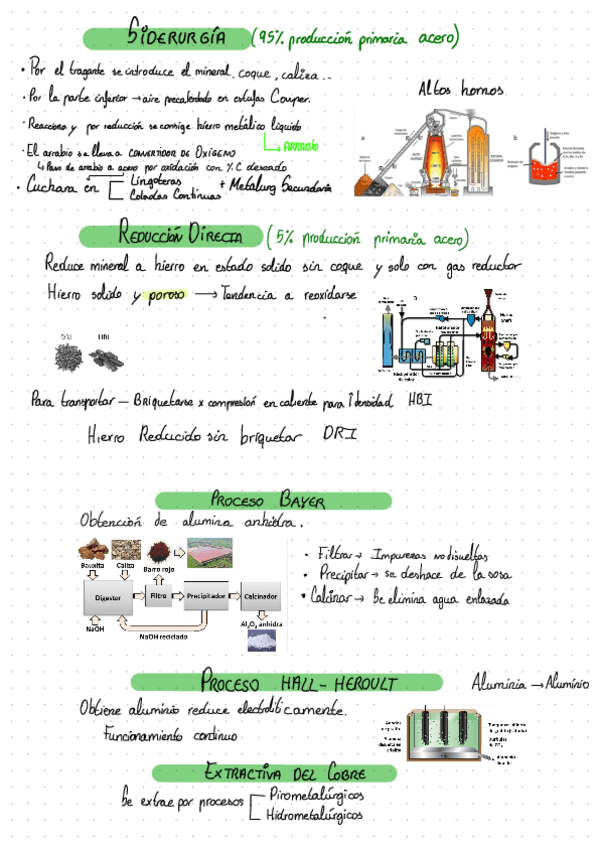 SIDERURGÍA (95% producción primaria acero)
· Por el tragante se introduce el mineral, coque, caliza...
· Por la parte inferior → aire precalentado en estufas Cowper.
Altos hornos
· Reacciona y por reducción se consigue hierro metálico líquido
↳ ARRABIO
· El arrabio se lleva a CONVERTIDOR DE OXÍGENO
↳ Paso de arrabio a acero por oxidación con %C deseado
· Cuchara en Lingoteras
Coladas Continuas
+ Metalurg Secundaria
REDUCCIÓN DIRECTA (5% producción primaria acero)
Reduce mineral a hierro en estado solido sin coque y solo con gas reductor
Hierro solido y poroso → Tendencia a reoxidarse
DRI HBI
Para transportar - Briquetarse x compresión en caliente para ↑densidad HBI
Hierro Reducido sin briquetar DRI
PROCESO BAYER
Obtención de alumina anhidra.
Bauxita Caliza Barro rojo
Digestor Filtro Precipitador Calcinador
NaOH
NaOH reciclado
Al₂O₃ anhidra
· Filtrar → Impurezas no disueltas
· Precipitar → se deshace de la sosa
· Calcinar → Se elimina agua enlazada
PROCESO HALL-HEROULT
Alumina → Aluminio
Obtiene aluminio reduce electroliticamente.
Funcionamiento continuo
EXTRACTIVA DEL COBRE
Se extrae por procesos Pirometalúrgicos
Hidrometalúrgicos